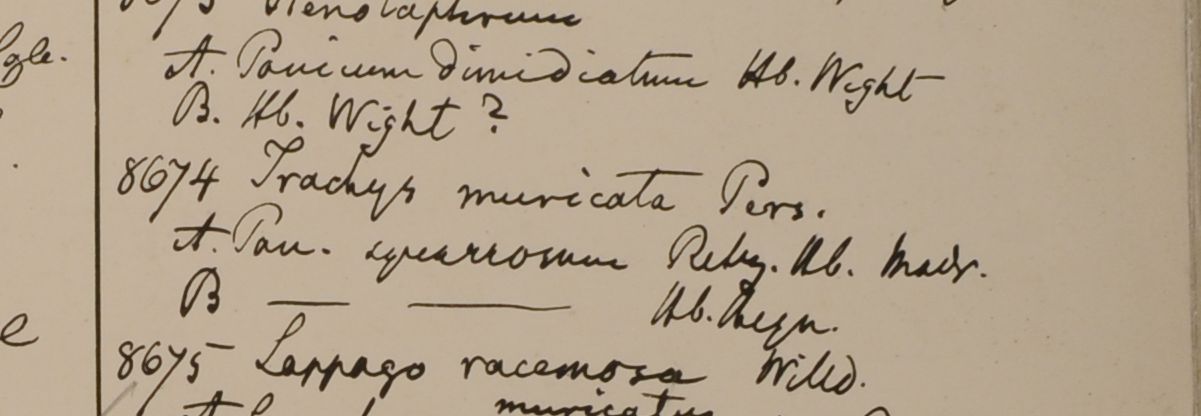 8673 Stenotaphrum
A. Panicum dimidiatum Hb. Wight
B. Hb. Wight?
8674 Trachys muricata Pers.
A. Pan. squarrosum Retz. Hb. Madr.
B — — Hb. Heyn.
8675 Lappago racemosa Willd.
A muricatu